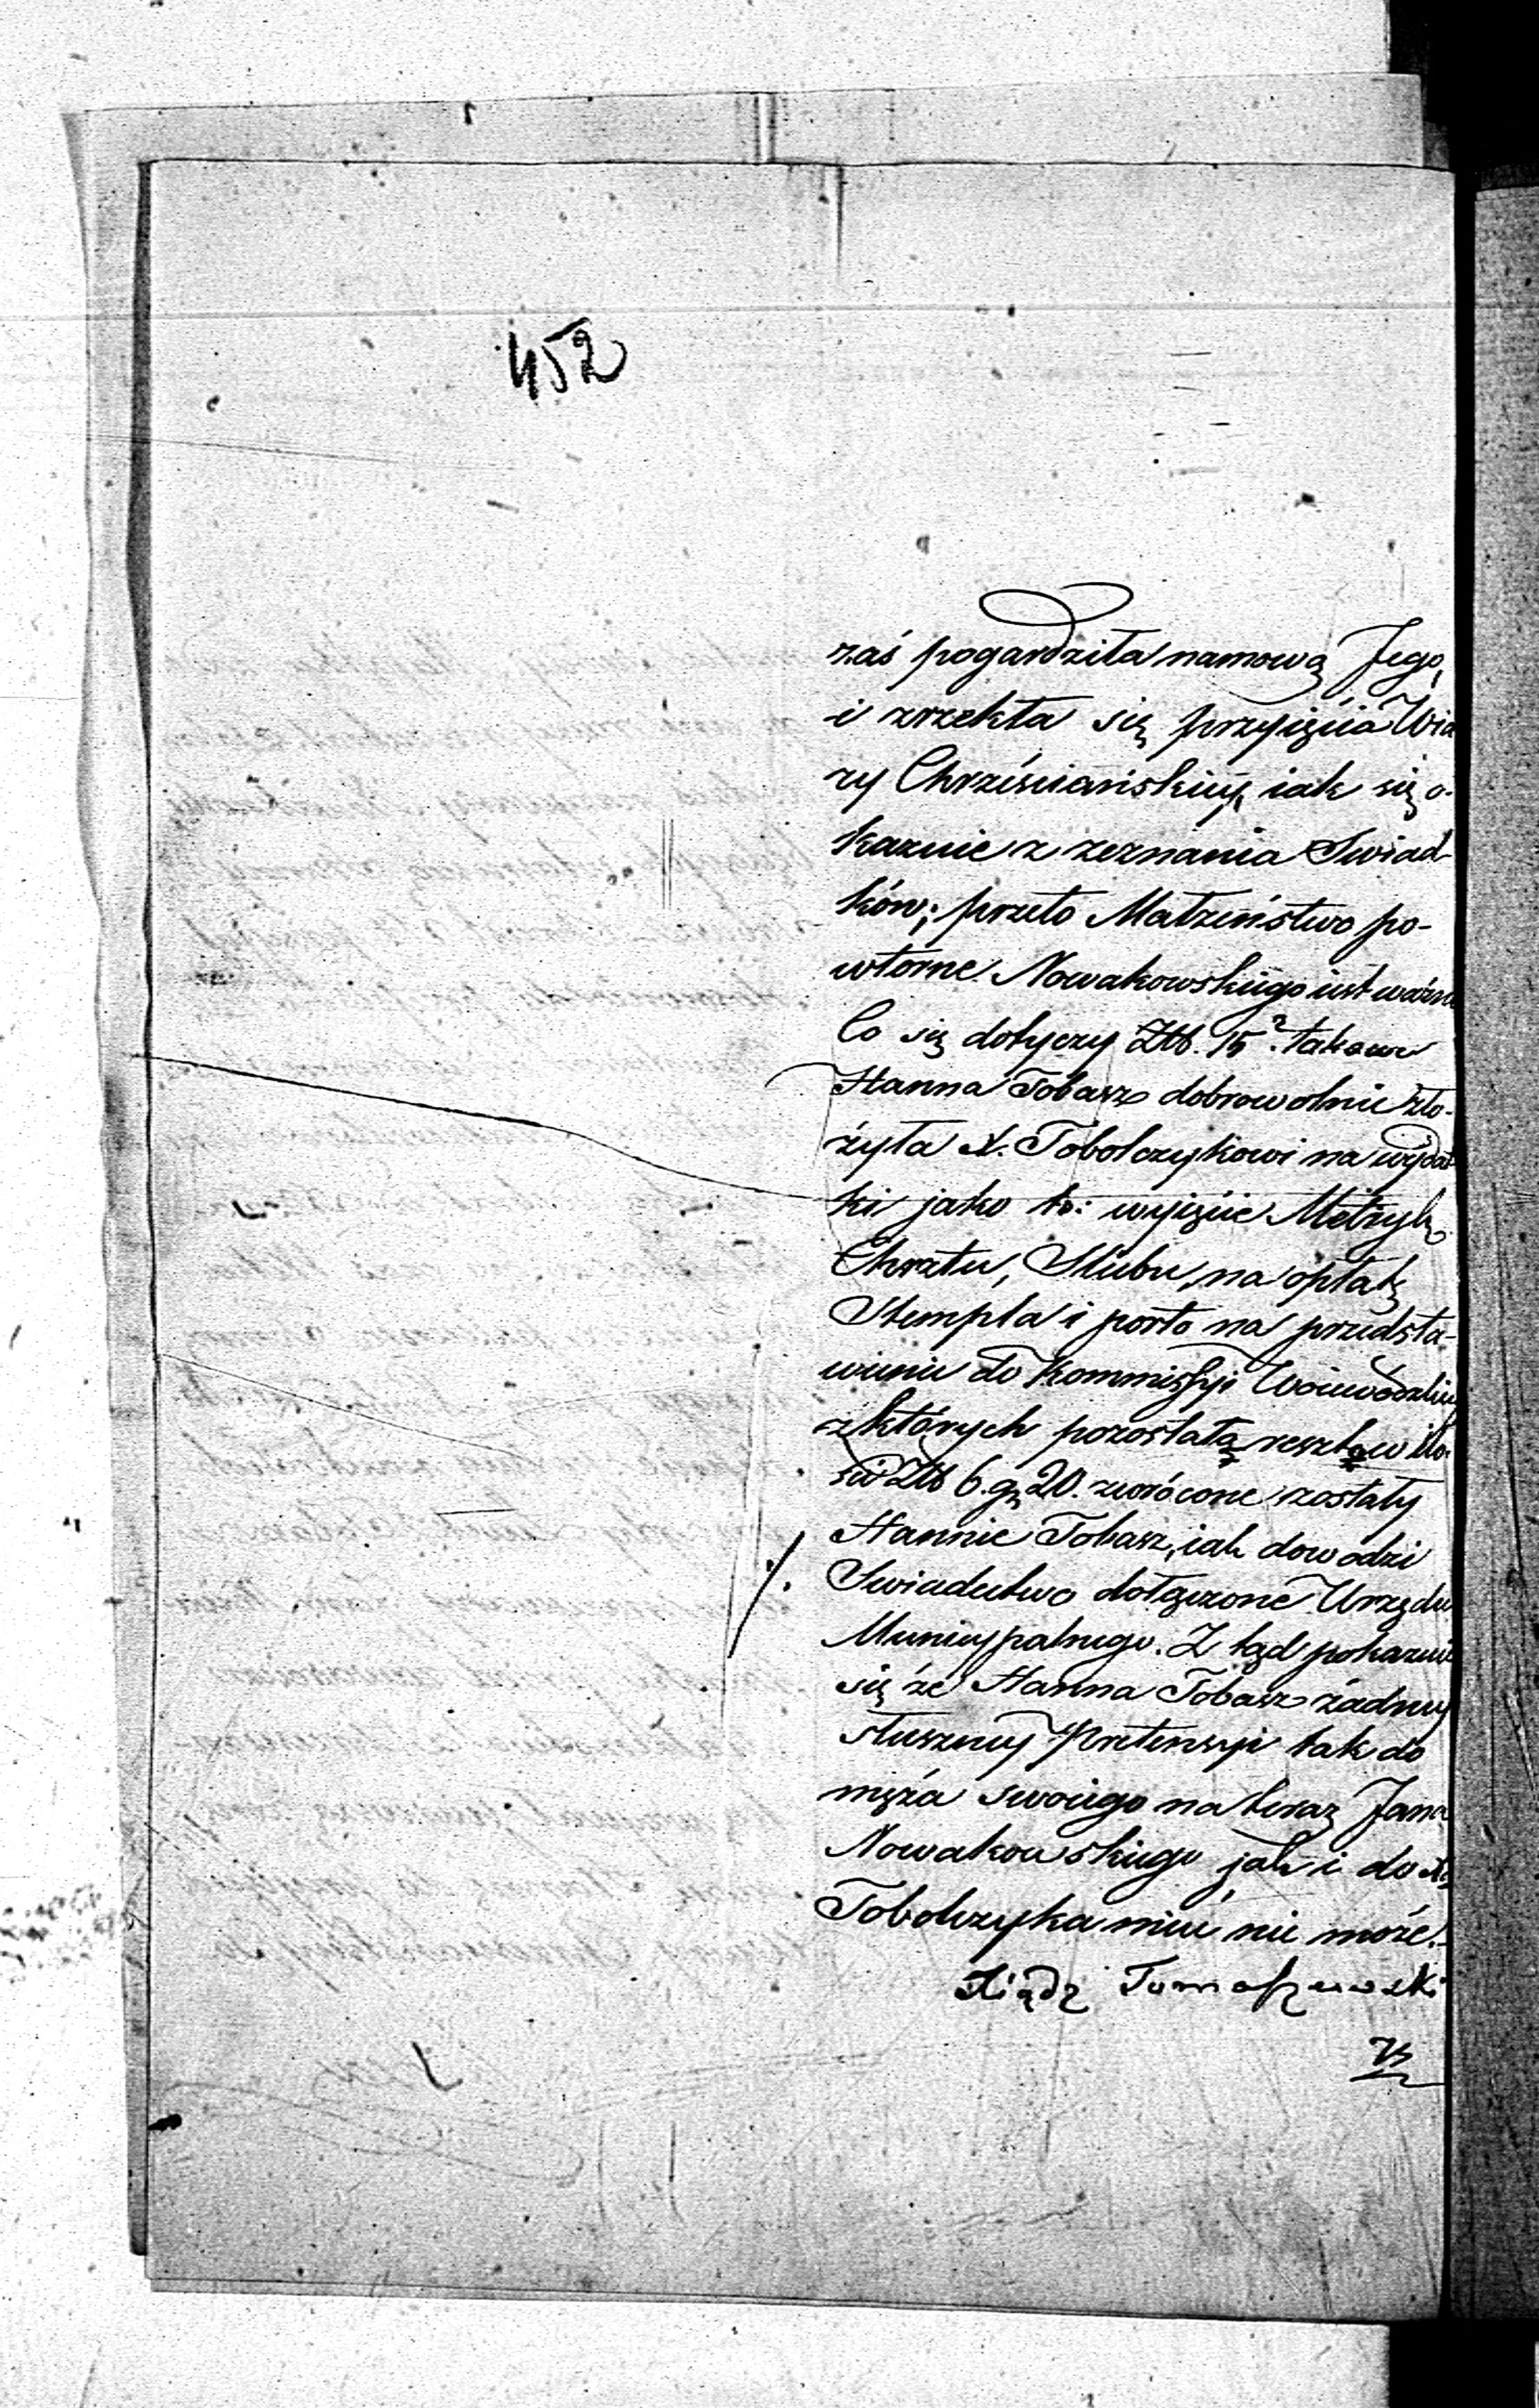 452
zaś pogardziła namową Jego,
i zrzekła się przyięcia Wia
ry Chrześciańskiey, iak się o-
kazuie z zeznania Swiad-
ków; przeto Małzeństwo po-
wtorne Nowakowskiego iest ważne
Co się dotyczy Złt. 15. takowe
Hanna Tobasz dobrowolnie zło-
żyła X. Tobolczykowi na wydat
ki jako to: wyięcie Metryk
Chrztu, Slubu, na opłatę
Stempla i porto na przedsta-
wienie do Kommissyi Woiewódzkiey
z których pozostałą resztę w ilo-
ści Złt 6. gr 20. zwrócone zostały
Hannie Tobasz, iak dowodzi
./. Swiadectwo dołączone Urzędu
Municypalnego. Z tąd pokazuie
się że Hanna Tobasz żadney
słuszney Pretensyi tak do
męża swoiego na teraz Jana
Nowakowskiego jak i do X.
Tobolczyka mieć nie może.
Xiądz Tomaszewski